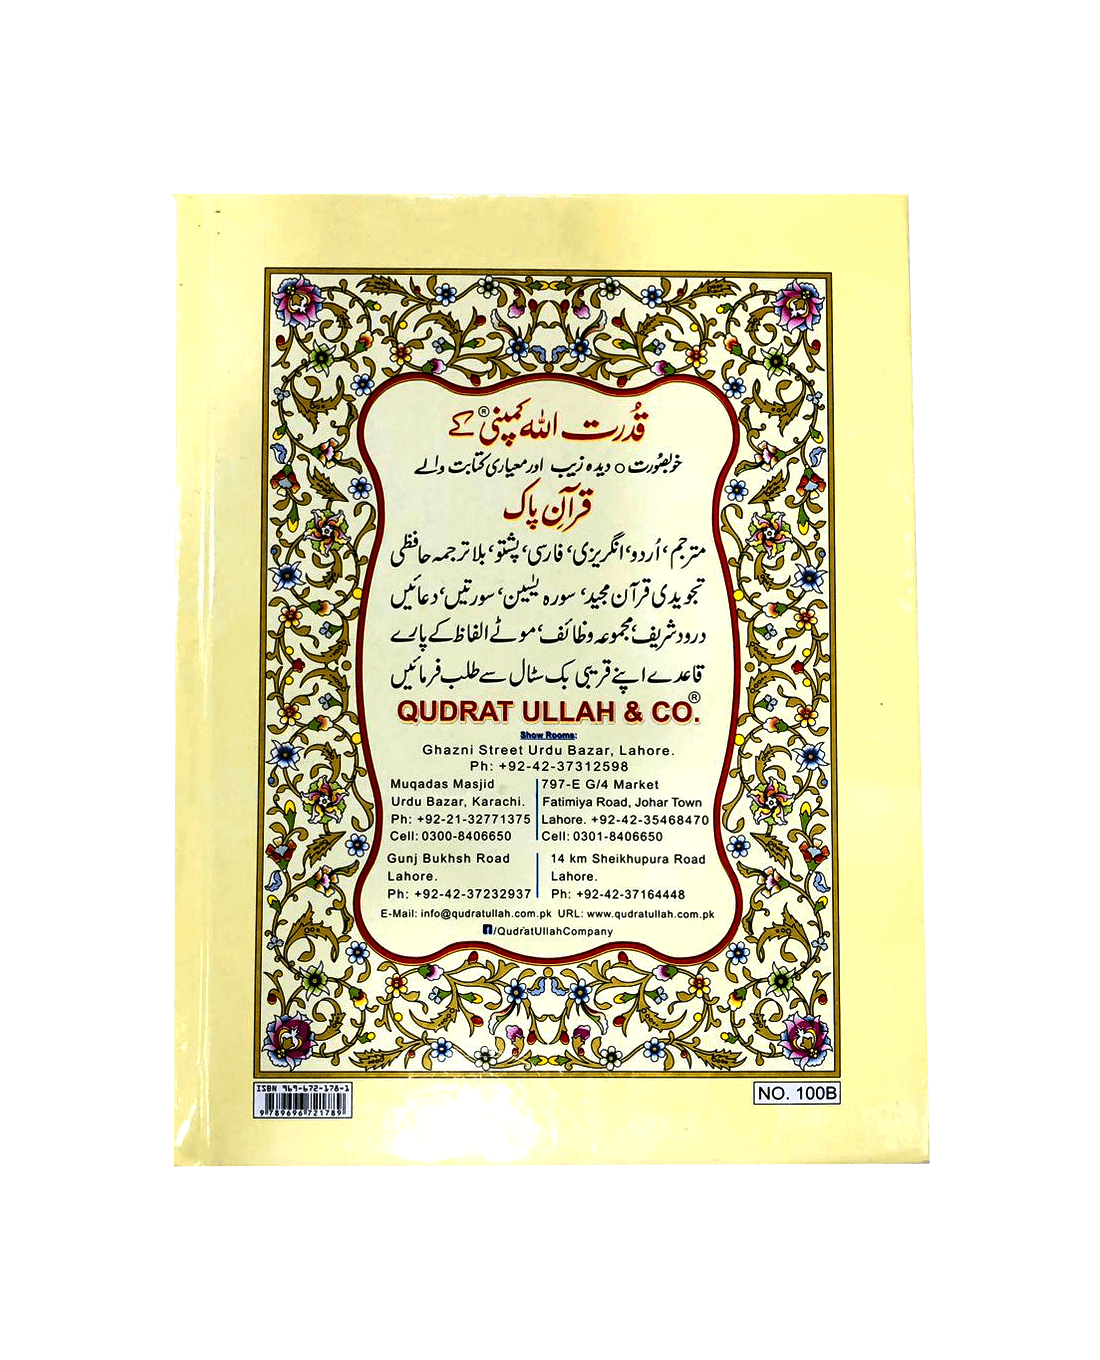 قُدرت اللہ کمپنی® کے
خوبصُورت ○ دیدہ زیب اور معیاری کتابت والے
قرآنِ پاک
مترجم، اُردو، انگریزی، فارسی، پشتو، بلا ترجمہ حافظی
تجویدی قرآن مجید، سورہ یٰسین، سورتیں، دعائیں
درود شریف، مجموعہ وظائف، موٹے الفاظ کے پارے
قاعدے اپنے قریبی بک سٹال سے طلب فرمائیں
QUDRAT ULLAH & CO.®
Show Rooms:
Ghazni Street Urdu Bazar, Lahore.
Ph: +92-42-37312598
Muqadas Masjid
Urdu Bazar, Karachi.
Ph: +92-21-32771375
Cell: 0300-8406650
797-E G/4 Market
Fatimiya Road, Johar Town
Lahore. +92-42-35468470
Cell: 0301-8406650
Gunj Bukhsh Road
Lahore.
Ph: +92-42-37232937
14 km Sheikhupura Road
Lahore.
Ph: +92-42-37164448
E-Mail: info@qudratullah.com.pk URL: www.qudratullah.com.pk
f/QudratUllahCompany
ISBN 969-672-178-1
9 789696 721789
NO. 100B